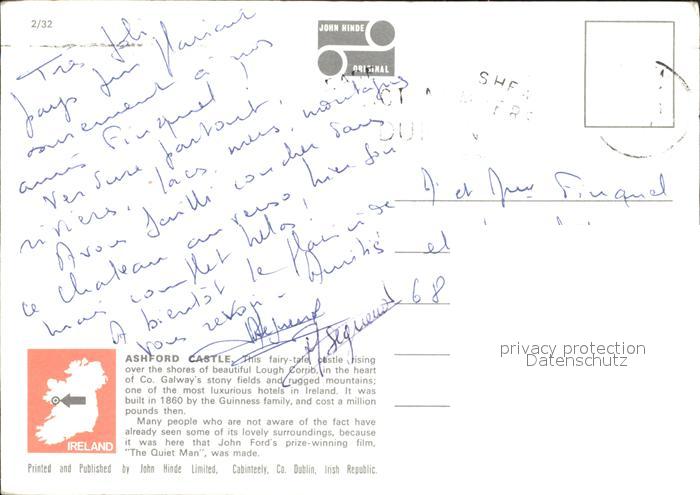 2/32
JOHN HINDE
ORIGINAL
Très joli
pays
à nos
amis Finquel !
Verdure partout,
rivières, lacs, mers, montagnes
Avons failli coucher dans
ce chateau au verso, hier soir
mais complet hélas !
A bientôt le plaisir de
vous revoir - Amitiés
SHE
M et Mme Finquel
et
68
privacy protection
Datenschutz
ASHFORD CASTLE, This fairy-tale castle rising
over the shores of beautiful Lough Corrib, in the heart
of Co. Galway's stony fields and rugged mountains;
one of the most luxurious hotels in Ireland. It was
built in 1860 by the Guinness family, and cost a million
pounds then.
Many people who are not aware of the fact have
already seen some of its lovely surroundings, because
it was here that John Ford's prize-winning film,
"The Quiet Man", was made.
IRELAND
Printed and Published by John Hinde Limited, Cabinteely, Co. Dublin, Irish Republic.